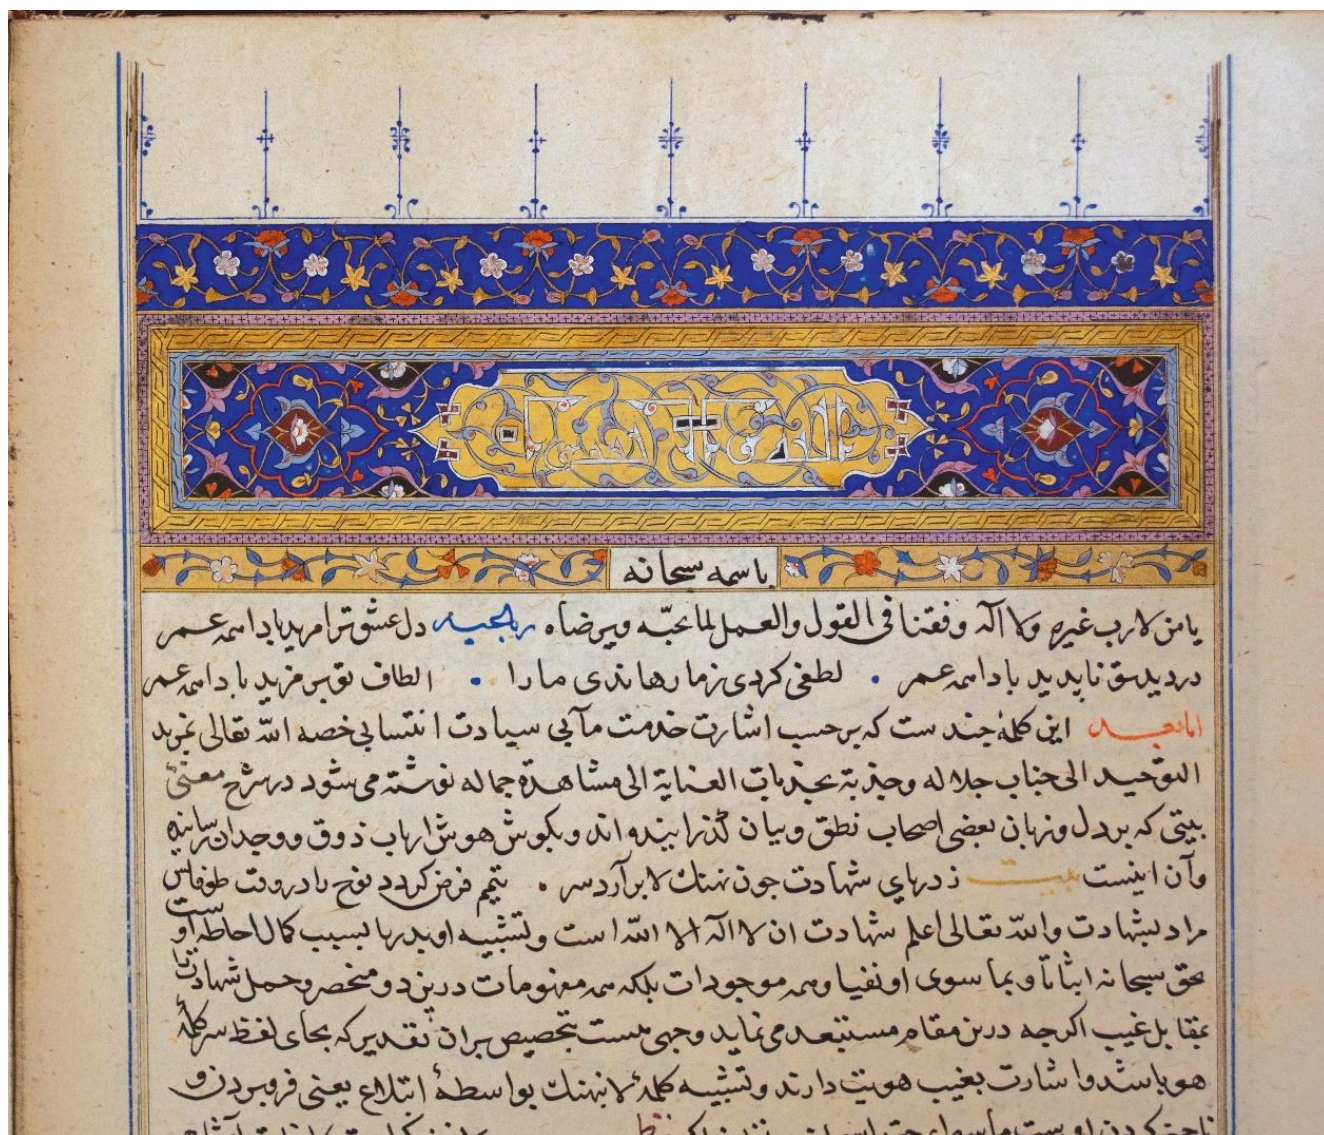 باسمه سبحانه
یا من لا رب غیره ولا اله وفقنا فی القول والعمل لما تحبه ویرضاه رباعیه دل عشق ترا مرید بادا همه عمر
در دید تو ناپدید بادا همه عمر لطفی کردی ز ما رهاندی ما را الطاف تو بر مزید بادا همه عمر
اما بعد این کلمهٔ چند ست که بر حسب اشارت خدمت مآبی سیادت انتسابی خصه الله تعالی
التوحید الی جناب جلاله وجذبة بجذبات العنایة الی مشاهدة جماله نوشته می شود در شرح معنی
بیتی که بر دل و زبان بعضی اصحاب نطق و بیان گذرانیده اند و بگوش هوش ارباب ذوق و وجدان رسانیده
وآن اینست بیت ز دریای شهادت چون نهنك لا برآرد سر تیمم فرض کردد نوح را در وقت طوفانش
مراد بشهادت والله تعالی اعلم شهادت ان لا اله الا الله است و تشبیه او بدریا بسبب کمال احاطهٔ او ست
بحق سبحانه اثباتا و بما سوی او نفیا و همه موجودات بلکه همه مفهومات درین دو منحصر و حمل شهادت
بمقابل غیب اکرچه درین مقام مستبعد می نماید وجهی هست بتخصیص بران تقدیر که بجای لفظ سر کلمهٔ
هو باشد و اشارت بغیب هویت دارند و تشبیه کلمهٔ لا بنهنك بواسطهٔ ابتلاع یعنی فرو بردن و